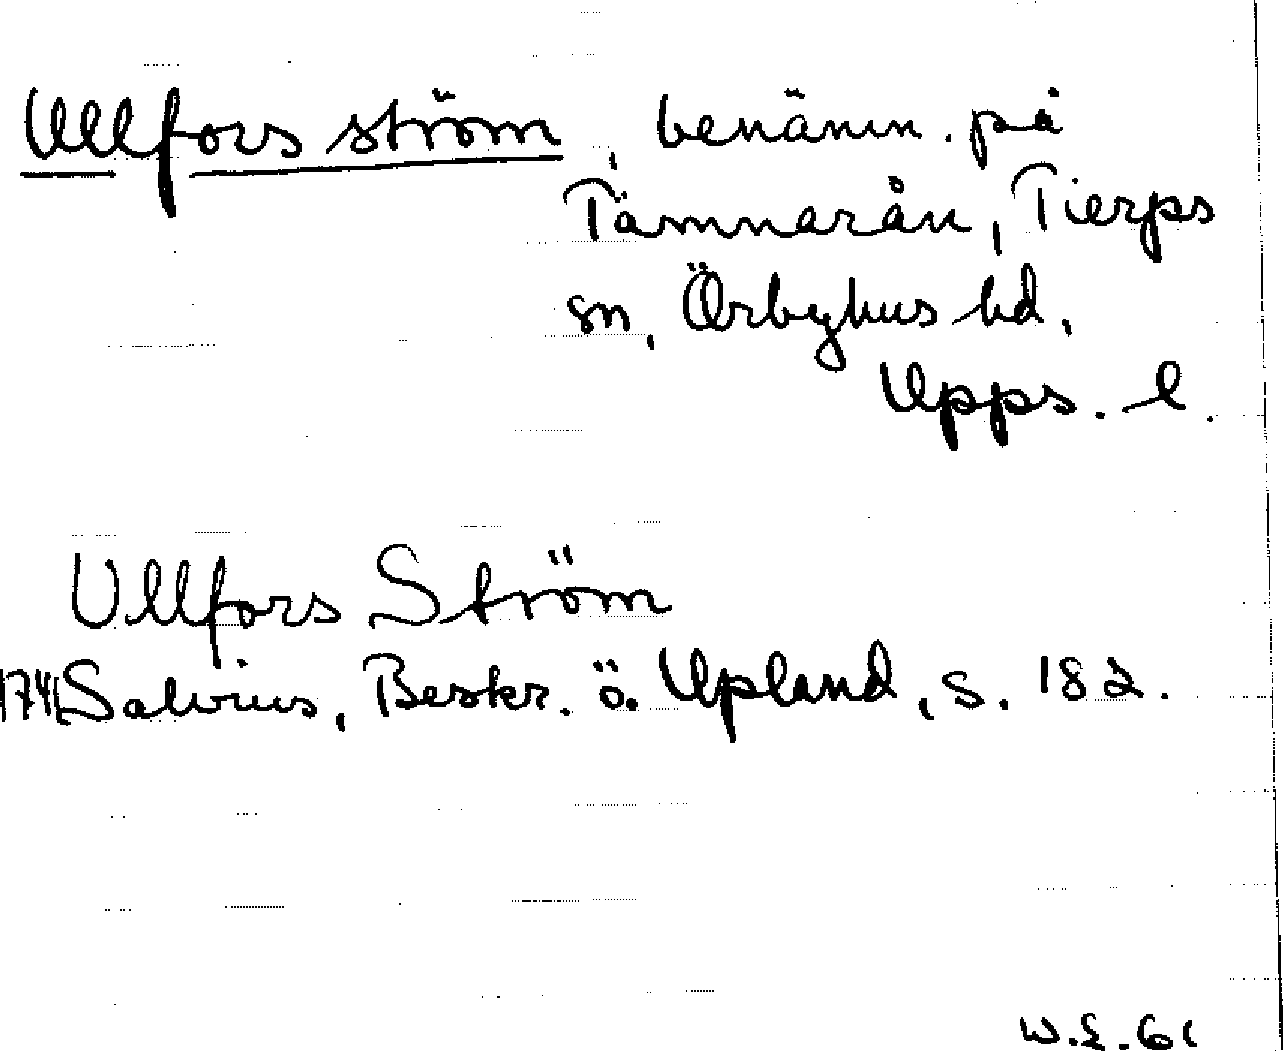 Ullfors ström, benämn. på
Tämnarån, Tierps
sn, Örbyhus hd,
Upps. l.
Ullfors Ström
1741 Salvius, Beskr. ö. Upland, s. 182.
W.E. 61